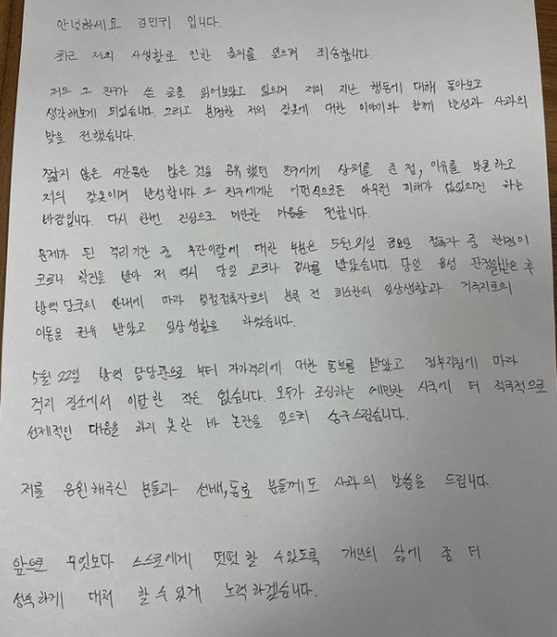 안녕하세요 김민귀 입니다.
최근 저의 사생활로 인한 물의를 일으켜 죄송합니다.
저는 그 친구가 쓴 글을 읽어보았고 읽으며 저의 지난 행동에 대해 돌아보고
생각해보게 되었습니다. 그리고 분명한 저의 잘못에 대한 이야기와 함께 반성과 사과의
말을 전했습니다.
짧지 않은 시간동안 많은 것을 공유했던 친구에게 상처를 준 점, 이유를 막론하고
저의 잘못이며 반성합니다. 그 친구에게는 어떤식으로든 아무런 피해가 없었으면 하는
바람입니다. 다시 한번 진심으로 미안한 마음을 전합니다.
문제가 된 격리기간 중 무단이탈에 대한 부분은 5월 21일 금요일 접촉자 중 한명이
코로나 확진을 받아 저 역시 당일 코로나 검사를 받았습니다. 당일 음성 판정을받은 후
방역 당국의 안내에 따라 밀접접촉자로의 분류 전 최소한의 일상생활과 거주지로의
이동을 권유 받았고 일상생활을 하였습니다.
5월 22일 방역 담당관으로 부터 자가격리에 대한 통보를 받았고 정부지침에 따라
격리 장소에서 이탈한 적은 없습니다. 모두가 조심하는 예민한 시국에 더 적극적으로
선제적인 대응을 하지 못한 바 논란을 일으켜 송구스럽습니다.
저를 응원해주신 분들과 선배, 동료 분들께도 사과의 말씀을 드립니다.
앞으로 무엇보다 스스로에게 떳떳할 수있도록 개인의 삶에 좀 더
성숙하게 대처 할 수 있게 노력하겠습니다.